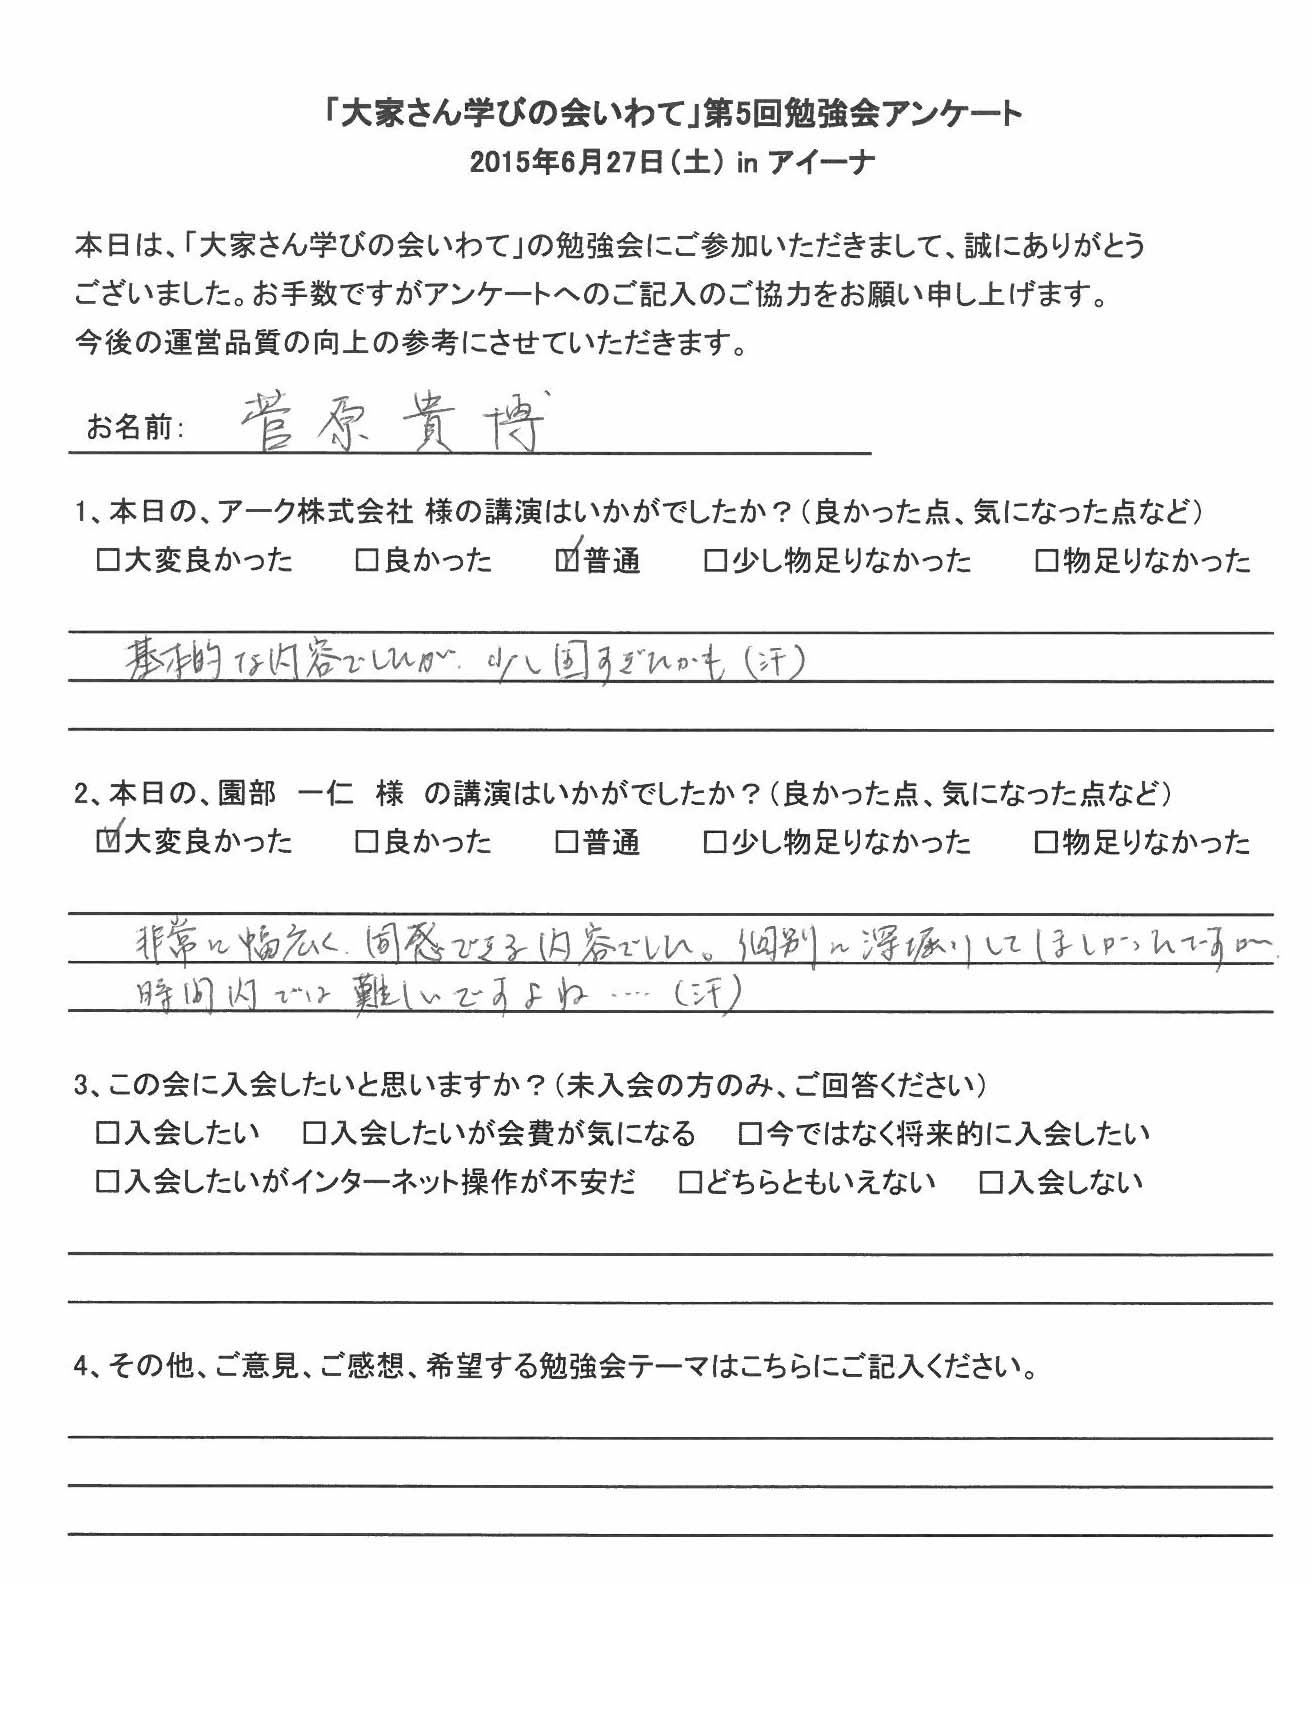 「大家さん学びの会いわて」第5回勉強会アンケート
2015年6月27日（土） in アイーナ
本日は、「大家さん学びの会いわて」の勉強会にご参加いただきまして、誠にありがとう
ございました。お手数ですがアンケートへのご記入のご協力をお願い申し上げます。
今後の運営品質の向上の参考にさせていただきます。
お名前: 菅原貴博
1、本日の、アーク株式会社 様の講演はいかがでしたか？（良かった点、気になった点など）
☐大変良かった ☐良かった ☑普通 ☐少し物足りなかった ☐物足りなかった
基本的な内容でしたが、少し固すぎたかも（汗）
2、本日の、園部 一仁 様 の講演はいかがでしたか？（良かった点、気になった点など）
☑大変良かった ☐良かった ☐普通 ☐少し物足りなかった ☐物足りなかった
非常に幅広く、同感できる内容でした。個別に深堀りしてほしかったですが、
時間内では難しいですよね……（汗）
3、この会に入会したいと思いますか？（未入会の方のみ、ご回答ください）
☐入会したい ☐入会したいが会費が気になる ☐今ではなく将来的に入会したい
☐入会したいがインターネット操作が不安だ ☐どちらともいえない ☐入会しない
4、その他、ご意見、ご感想、希望する勉強会テーマはこちらにご記入ください。